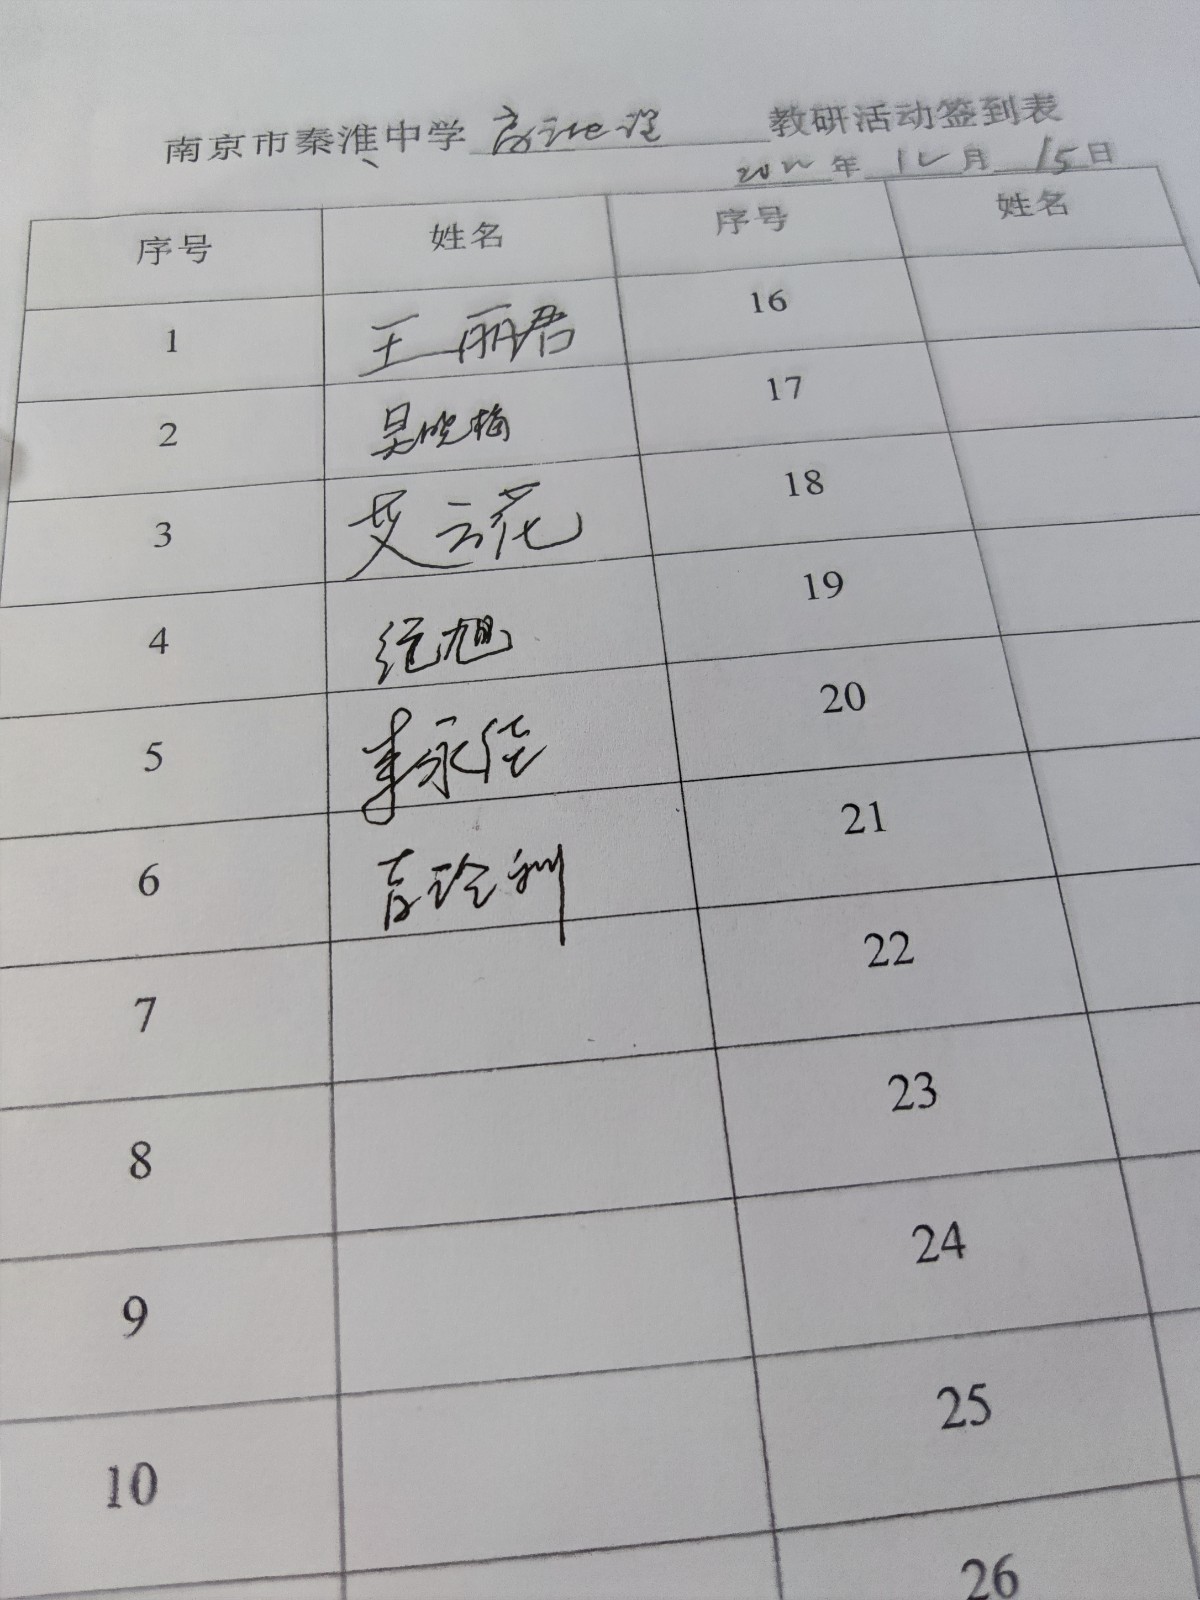 南京市秦淮中学 高一地理 教研活动签到表
2022 年 12 月 15 日
序号 姓名 序号 姓名
1 王丽君 16
2 吴晓梅 17
3 艾云花 18
4 纪旭 19
5 李永佳 20
6 21
7 22
8 23
9 24
10 25
26